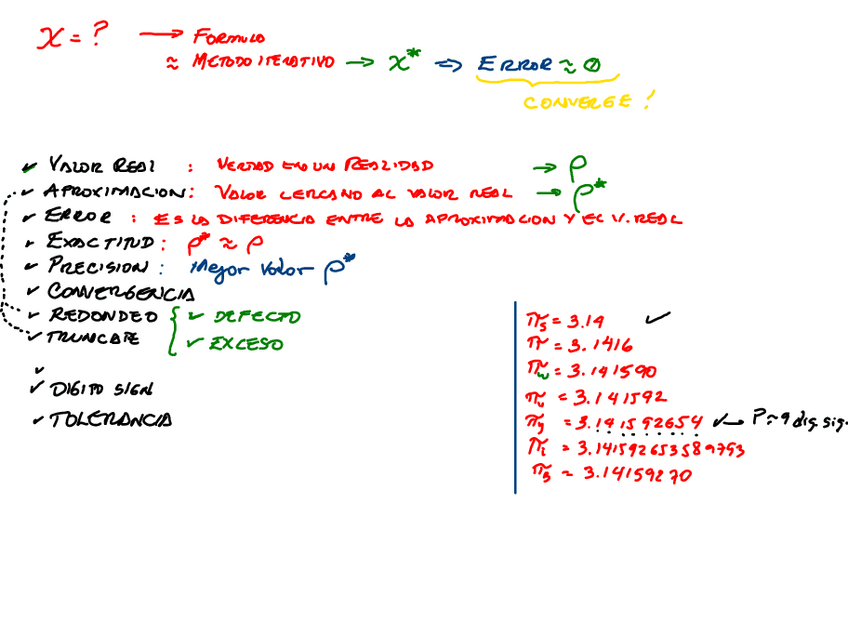 x = ? → FORMULA
≈ METODO ITERATIVO → x* ⇒ ERROR ≈ 0
CONVERGE!
✓ VALOR REAL : VERTAD EN UN REALIDAD → P
✓ APROXIMACION: VALOR CERCANO AL VALOR REAL → P*
✓ ERROR : ES LA DIFERENCIA ENTRE LA APROXIMACION Y EL V. REAL
✓ EXACTITUD: P* ≈ P
✓ PRECISION: Mejor Valor P*
✓ CONVERGENCIA
✓ REDONDEO { ✓ DEFECTO
✓ TRUNCATE ✓ EXCESO
✓
✓ DIGITO SIGN
✓ TOLERANCIA
π₅ = 3.14 ✓
π = 3.1416
= 3.141590
= 3.141592
= 3.141592654 → P ≈ 9 dig. sig.
= 3.141592653589793
π₃ = 3.14159270